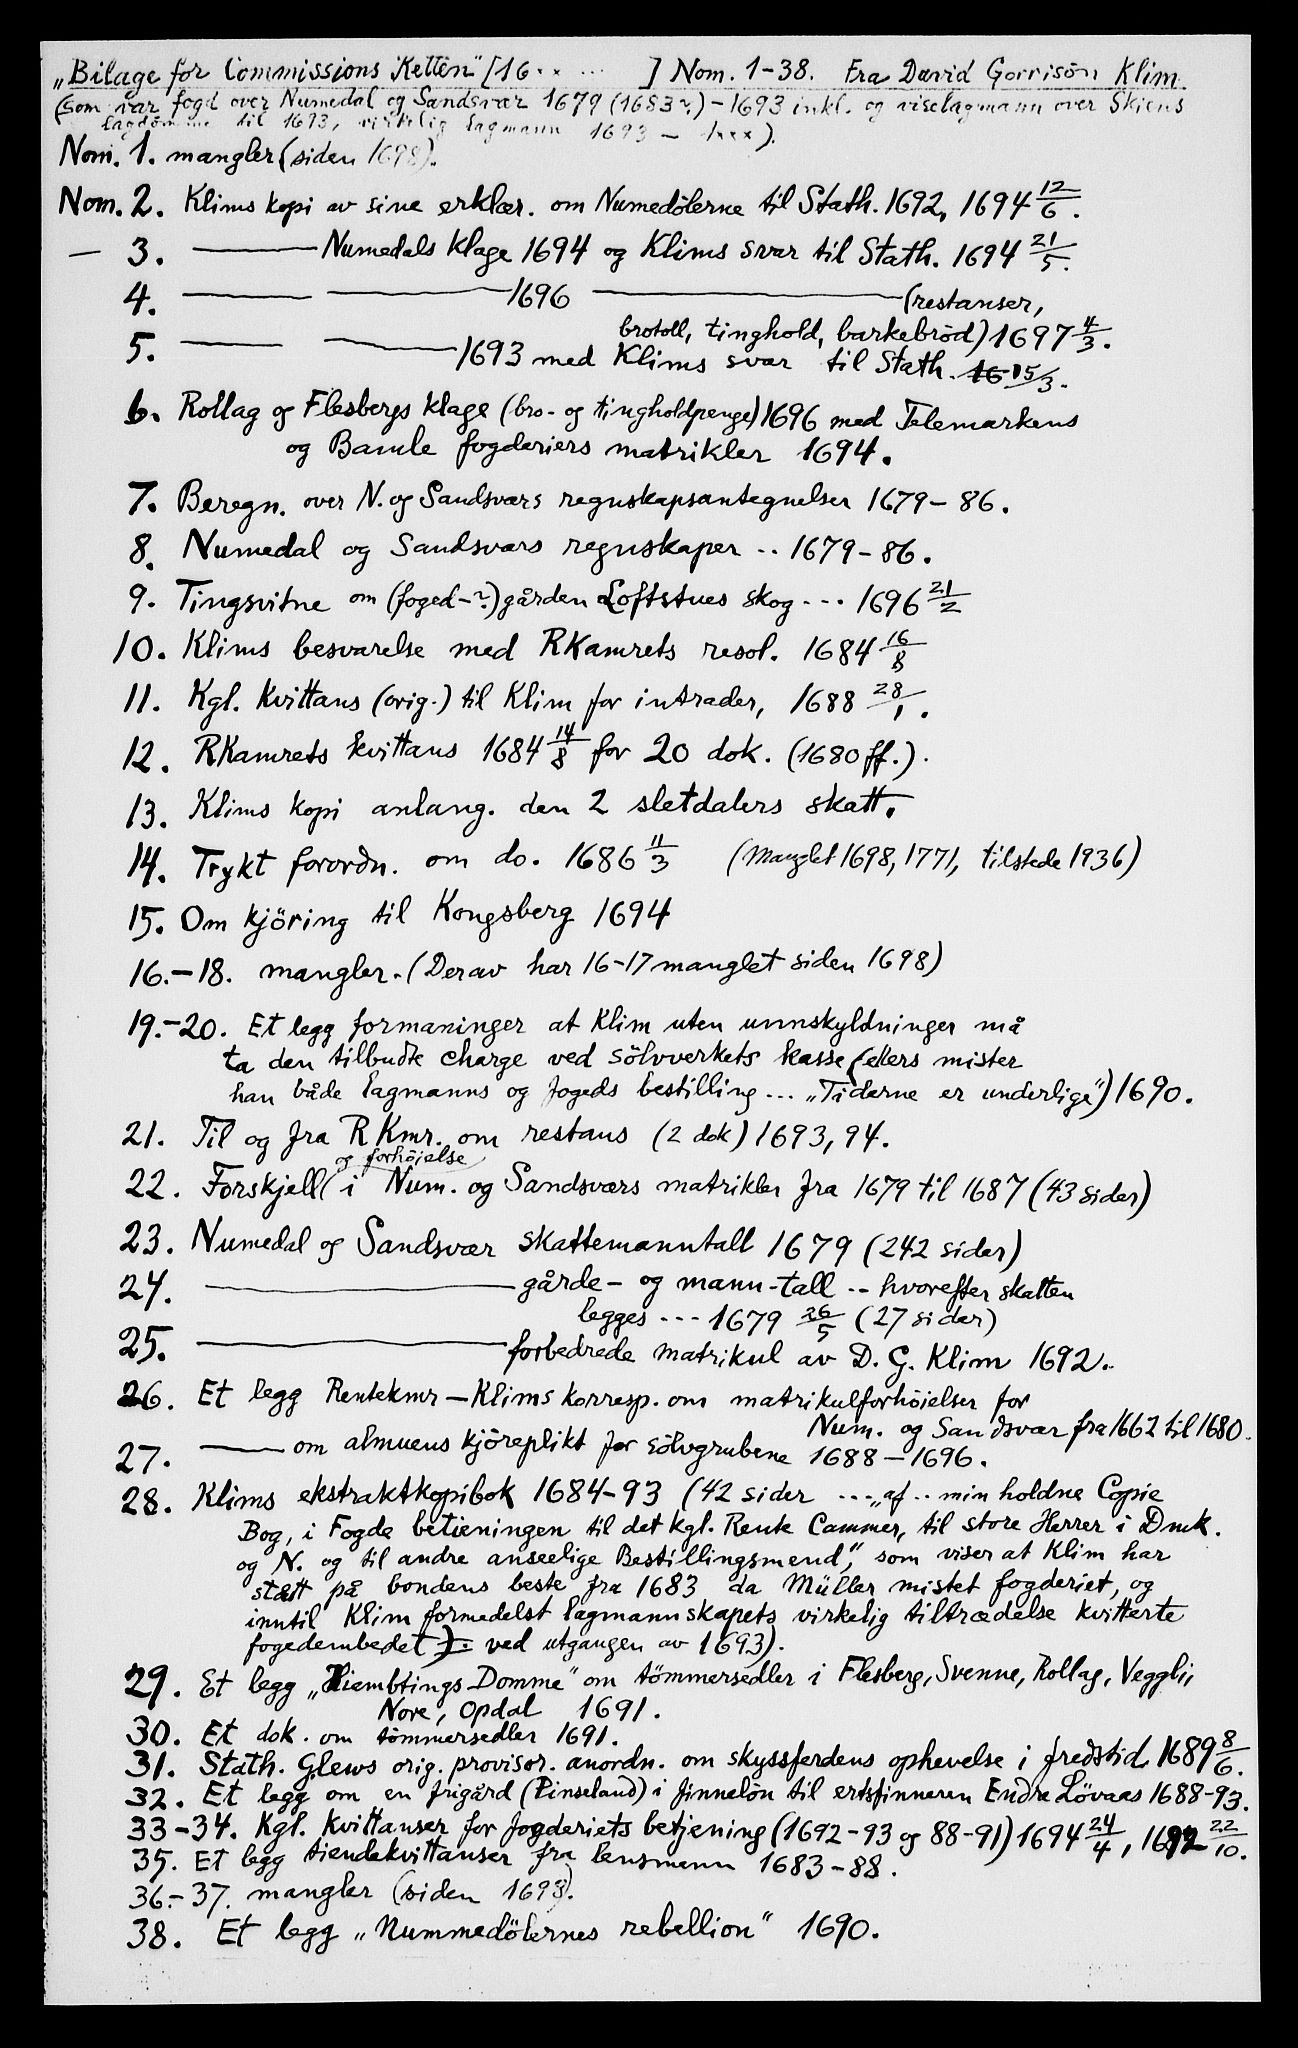 „Bilage for Commissions Retten" [16.. ... ] Nom. 1-38. Fra David Gorrisøn Klim.
(som var fogd over Numedal og Sandsvær 1679 (1683?) - 1693 inkl. og viselagmann over Skiens
lagdömme til 1693, virkelig lagmann 1693 - 1xxx).
Nom. 1. mangler (siden 1698).
Nom. 2. Klims kopi av sine erklær. om Numedölerne til Stath. 1692, 1694 12/6.
— 3. ——— Numedals klage 1694 og Klims svar til Stath. 1694 21/5.
4. ——— ——— 1696 ——— (restanser,
brotoll, tinghold, barkebröd) 1697 4/3.
5. ——— ——— 1693 med Klims svar til Stath. 16 15/3.
6. Rollag og Flesbergs klage (bro- og tingholdpenge) 1696 med Telemarkens
og Bamle fogderiers matrikler 1694.
7. Beregn. over N. og Sandsværs regnskapsantegnelser 1679-86.
8. Numedal og Sandsværs regnskaper .. 1679-86.
9. Tingsvitne om (foged-?) gården Loftstues skog --- 1696 21/2
10. Klims besvarelse med RKamrets resol. 1684 16/8
11. Kgl. kvittans (orig.) til Klim for intrader, 1688 28/1.
12. RKamrets kvittans 1684 14/8 for 20 dok. (1680 ff.).
13. Klims kopi anlang. den 2 sletdalers skatt.
14. Trykt forordn. om do. 1686 11/3 (Manglet 1698, 1771, tilstede 1936)
15. Om kjöring til Kongsberg 1694
16.-18. mangler. (Derav har 16-17 manglet siden 1698)
19.-20. Et legg formaninger at Klim uten unnskyldninger må
ta den tilbudte charge ved sölvverkets kasse (ellers mister
han både lagmanns og fogeds bestilling ... „Tiderne er underlige") 1690.
21. Til og fra R Kmr. om restans (2 dok) 1693, 94.
og forhöjelse
22. Forskjell i Num. og Sandsværs matrikler fra 1679 til 1687 (43 sider)
23. Numedal og Sandsvær skattemanntall 1679 (242 sider)
24. ——— gårde- og mann-tall .. hvorefter skatten
legges --- 1679 26/5 (27 sider)
25. ——— forbedrede matrikul av D. G. Klim 1692.
26. Et legg Rentekmr — Klims korresp. om matrikulforhöielser for
Num. og Sandsvær fra 1662 til 1680.
27. —— om almuens kjöreplikt for sölvgrubene 1688 - 1696.
28. Klims ekstraktkopibok 1684-93 (42 sider ...„af .. min holdne Copie
Bog, i Fogde betieningen til det kgl. Rente Cammer, til store Herrer i Dmk.
og N. og til andre anseelige Bestillingsmend", som viser at Klim har
stått på bondens beste fra 1683 da Müller mistet fogderiet, og
inntil Klim formedelst lagmannskapets virkelig tiltrædelse kvitterte
fogedembedet ved utgangen av 1693).
29. Et legg „Hiembtings Domme" om tömmersedler i Flesberg, Svenne, Rollag, Veggli,
Nore, Opdal 1691.
30. Et dok. om tömmersedler 1691.
31. Stath. Glews orig. provisor. anordn. om skyssferdens ophevelse i fredstid, 1689 8/6.
32. Et legg om en frigård (Pinseland) i Jinnelön til ertsfinneren Endre Lövaas 1688-93.
33-34. Kgl. kvittanser for fogderiets betjening (1692-93 og 88-91) 1694 24/4, 1692 22/10.
35. Et legg tiendekvittanser fra lensmenn 1683-88.
36.-37. mangler (siden 1698).
38. Et legg „Nummedölernes rebellion" 1690.